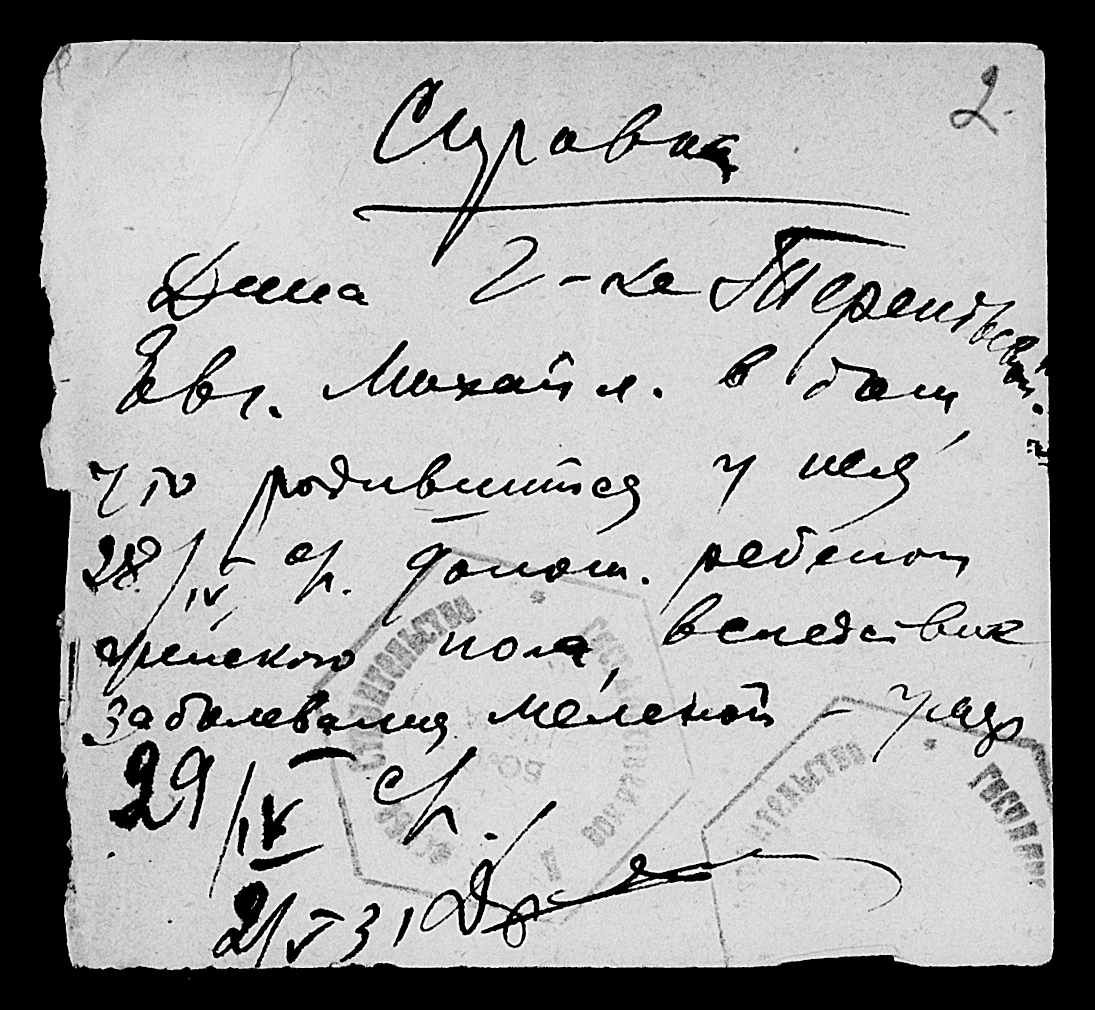 2.
Справка
Дана г-ке Терентьевой
Евг. Михайл. в том,
что родившийся у нея
28/IV с/г. донош. ребенок
женского пола, вследствие
заболевания меленой – умер
29/IV с/г.
2/V 31
СТРОИТЕЛЬСТВО